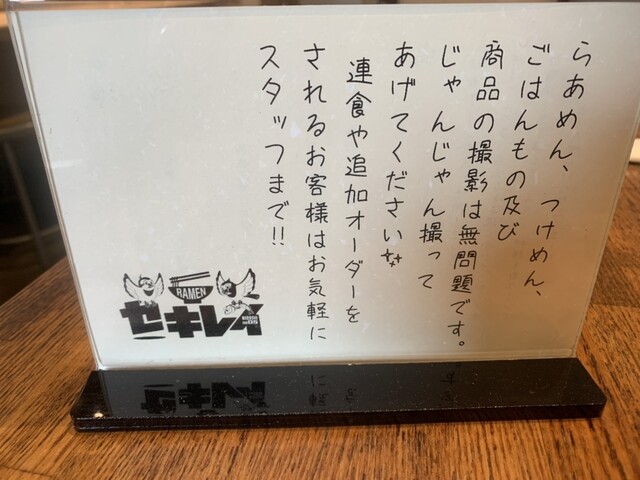 らあめん、つけめん、
ごはんもの及び
商品の撮影は無問題です。
じゃんじゃん撮って
あげてください
連食や追加オーダーを
されるお客様はお気軽に
スタッフまで!!
RAMEN
セキレイ